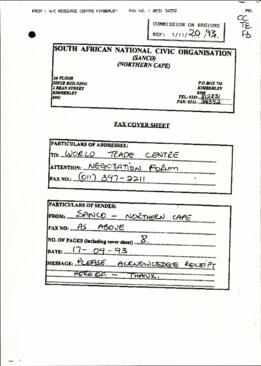 FROM : NYC RESOURCE CENTRE KIMBERLEY FAX NO. : 0531 34352 P01
CC
TE
FD
COMMISSION ON REGIONS
REF: 1/11/20/93.
SOUTH AFRICAN NATIONAL CIVIC ORGANISATION
(SANCO)
(NORTHERN CAPE)
1st FLOOR
DIRGE BUILDING
3 BEAN STREET
KIMBERLEY
8301
P O BOX 726
KIMBERLEY
8300
TEL: 0531-
FAX: 0531-
FAX COVER SHEET
PARTICULARS OF ADDRESSEE:
TO: WORLD TRADE CENTRE
ATTENTION: NEGOTATION FORUM
FAX NO.: (011) 397-2211
PARTICULARS OF SENDER:
FROM: SANCO - NORTHERN CAPE
FAX NO: AS ABOVE
NO. OF PAGES (including cover sheet) 8
DATE: 17-09-93
MESSAGE: PLEASE ACKNOWLEDGE RECEIPT
HERE OF - THANK.